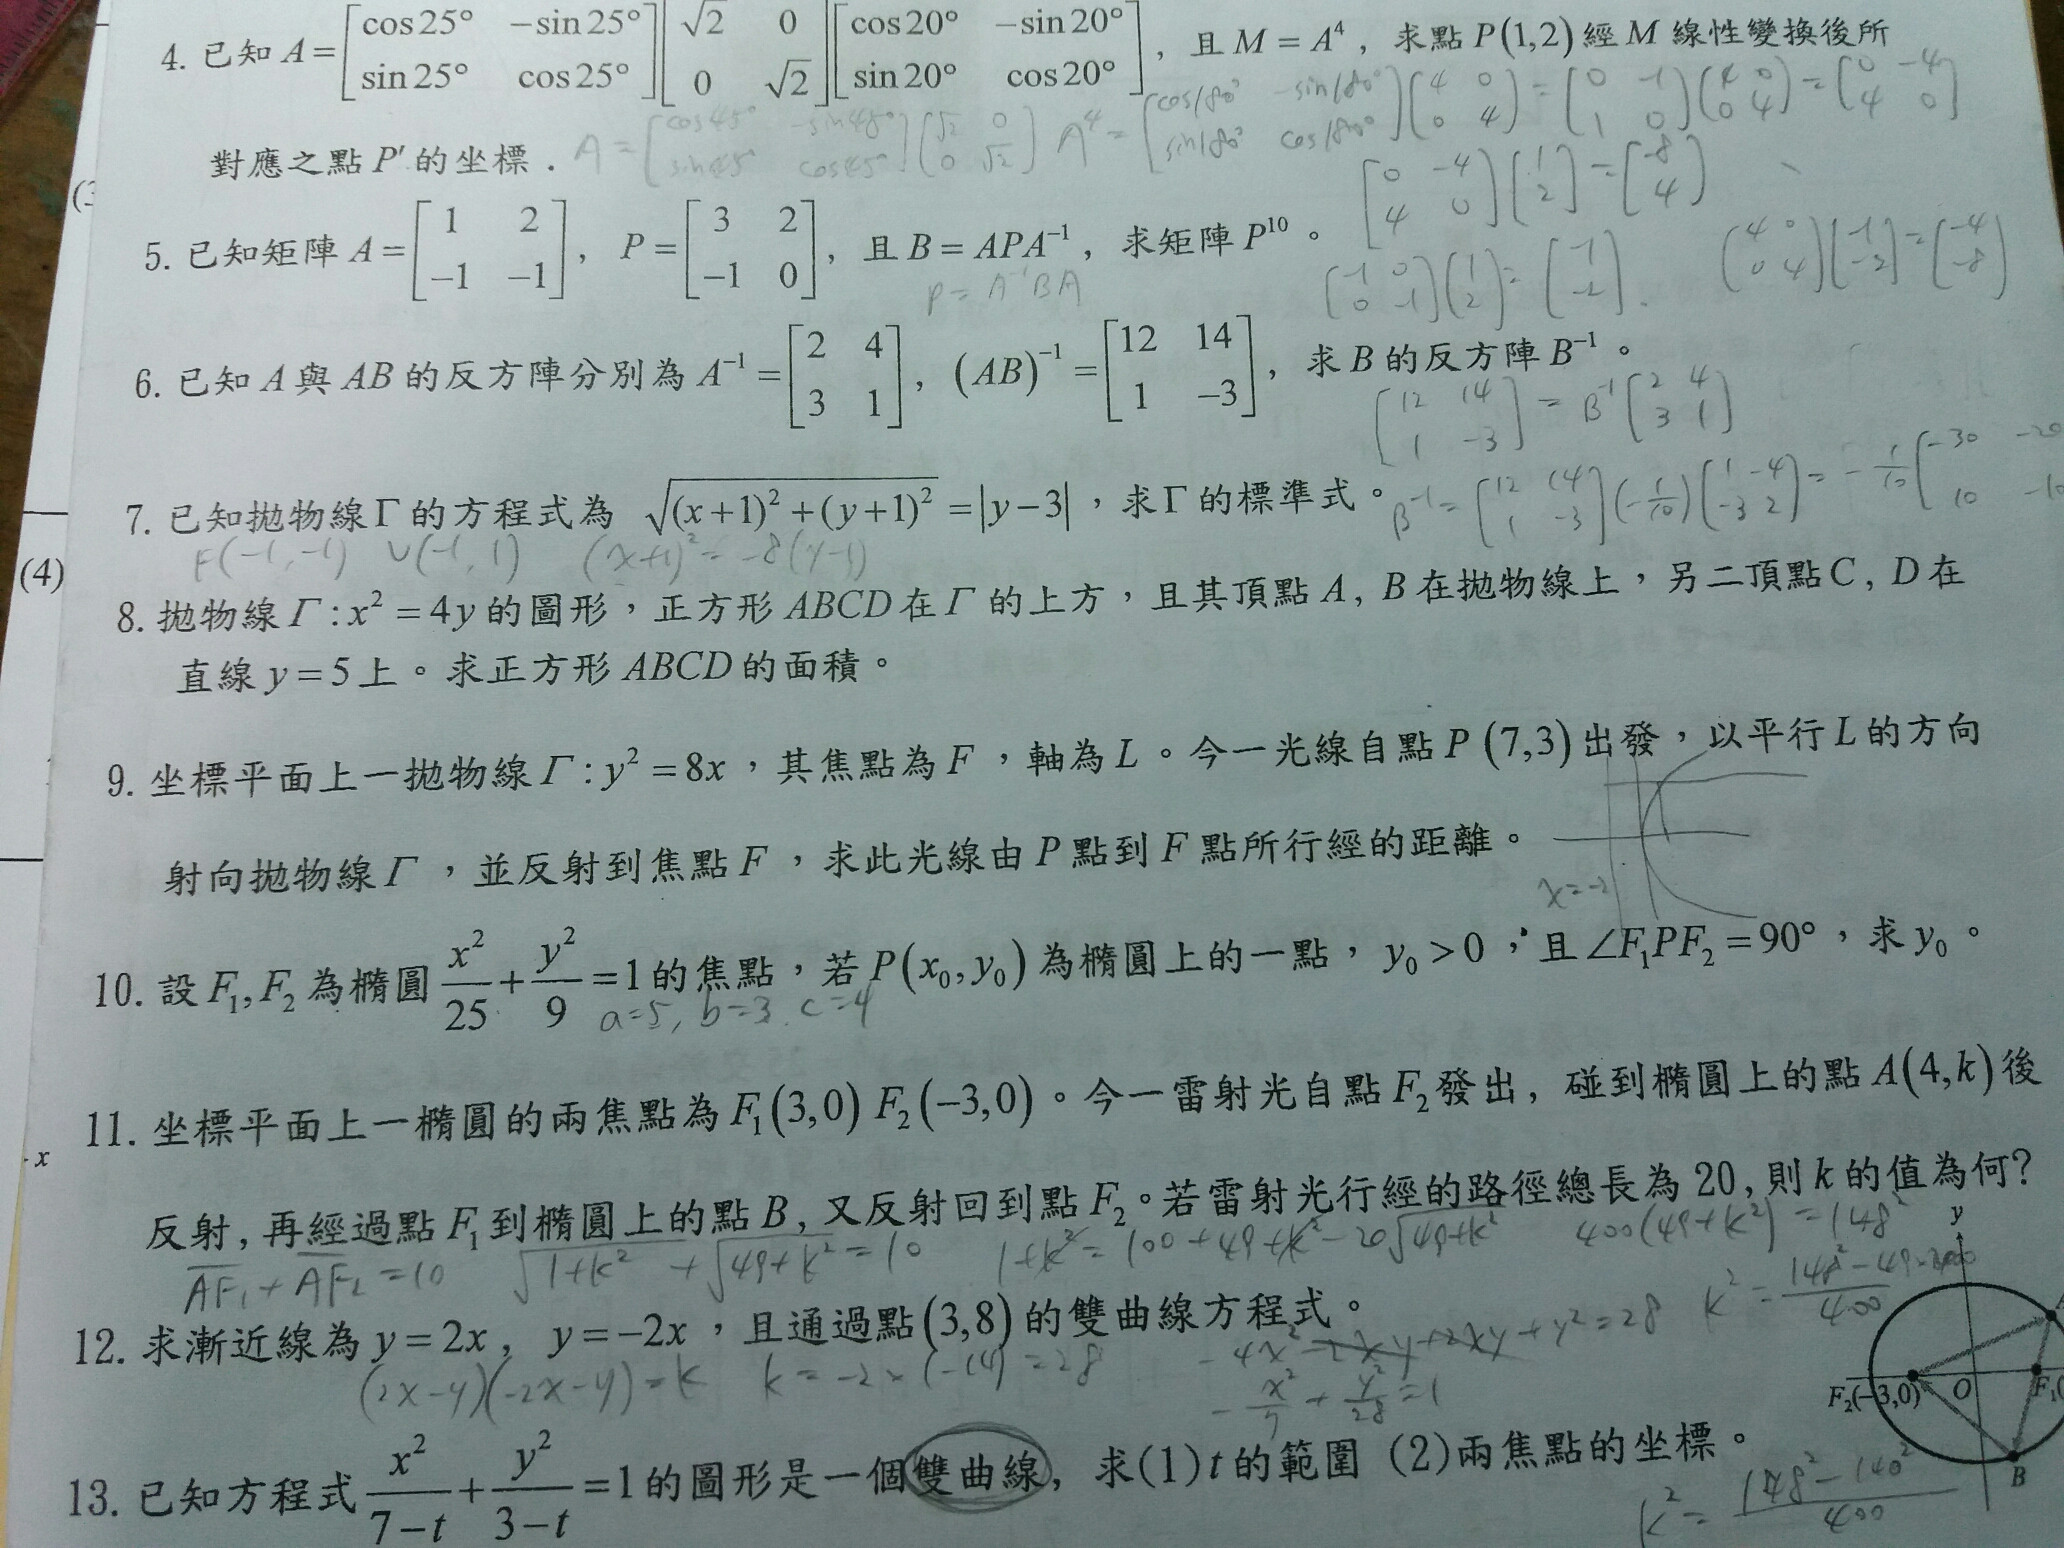 4. 已知 A = [cos25° −sin25°; sin25° cos25°][√2 0; 0 √2][cos20° −sin20°; sin20° cos20°], 且 M = A⁴, 求點 P(1,2) 經 M 線性變換後所
對應之點 P′ 的坐標.
A = [cos45° −sin45°; sin45° cos45°][√2 0; 0 √2] A⁴ = [cos180° −sin180°; sin180° cos180°][4 0; 0 4] = [0 −1; 1 0][4 0; 0 4] = [0 −4; 4 0]
[0 −4; 4 0][1; 2] = [−8; 4]
5. 已知矩陣 A = [1 2; −1 −1], P = [3 2; −1 0], 且 B = APA⁻¹, 求矩陣 P¹⁰。
P = A⁻¹BA
[−1 0; 0 −1][1; 2] = [−1; −2].
[4 0; 0 4][−1; −2] = [−4; −8]
6. 已知 A 與 AB 的反方陣分別為 A⁻¹ = [2 4; 3 1], (AB)⁻¹ = [12 14; 1 −3], 求 B 的反方陣 B⁻¹。
[12 14; 1 −3] = B⁻¹[2 4; 3 1]
7. 已知拋物線Γ的方程式為 √((x+1)²+(y+1)²) = |y−3|,求Γ的標準式。
B⁻¹ = [12 14; 1 −3](−1/10)[1 −4; −3 2] = −1/10[−30 −20; 10 −10
F(−1,−1) V(−1,1) (x+1)² = −8(y−1)
(4)
8. 拋物線Γ:x² = 4y的圖形,正方形ABCD在Γ的上方,且其頂點A, B在拋物線上,另二頂點C, D在
直線 y = 5上。求正方形ABCD的面積。
9. 坐標平面上一拋物線Γ:y² = 8x,其焦點為F,軸為L。今一光線自點P(7,3)出發,以平行L的方向
射向拋物線Γ,並反射到焦點F,求此光線由P點到F點所行經的距離。
x=−2
10. 設F₁,F₂為橢圓 x²/25 + y²/9 = 1的焦點,若P(x₀,y₀)為橢圓上的一點, y₀ > 0,且∠F₁PF₂ = 90°,求y₀。
a=5, b=3, c=4
11. 坐標平面上一橢圓的兩焦點為F₁(3,0) F₂(−3,0)。今一雷射光自點F₂發出, 碰到橢圓上的點A(4,k)後
x
反射, 再經過點F₁到橢圓上的點B, 又反射回到點F₂。若雷射光行經的路徑總長為20, 則k的值為何?
AF₁ + AF₂ = 10 √(1+k²) + √(49+k²) = 10 1+k² = 100+49+k²−20√(49+k²) 400(49+k²) = 148²
12. 求漸近線為 y = 2x, y = −2x,且通過點(3,8)的雙曲線方程式。
(2x−y)(−2x−y) = k k = −2×(−14) = 28
−x²/7 + y²/28 = 1
13. 已知方程式 x²/(7−t) + y²/(3−t) = 1的圖形是一個雙曲線, 求(1)t的範圍 (2)兩焦點的坐標。
k² = (148²−140²)/400
y
F₂(−3,0)
O
F₁(
B